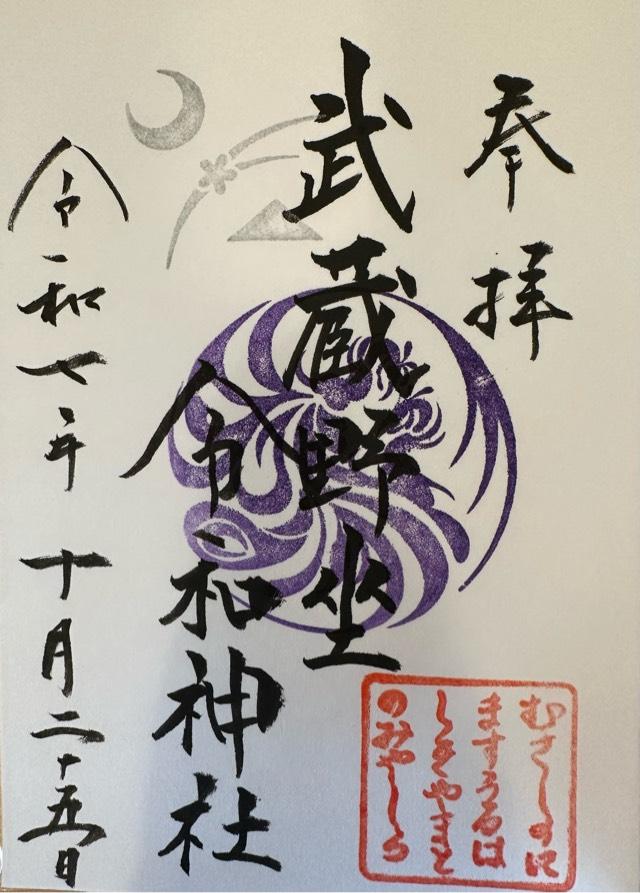 奉拝
武蔵野坐
令和神社
令和七年十月二十五日
むさしのに
ますうるは
しきやまと
のみやしろ